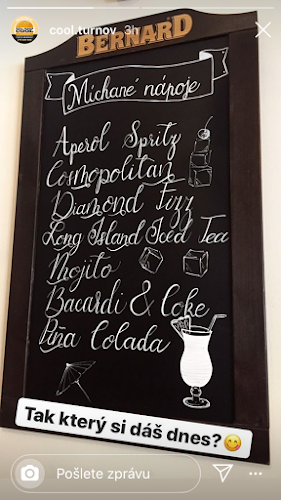 cool.turnov 3h
BERNARD
Míchané nápoje
Aperol Spritz
Cosmopolitan
Diamond Fizz
Long Island Iced Tea
Mojito
Bacardi & Coke
Piña Colada
Tak který si dáš dnes?😋
Pošlete zprávu